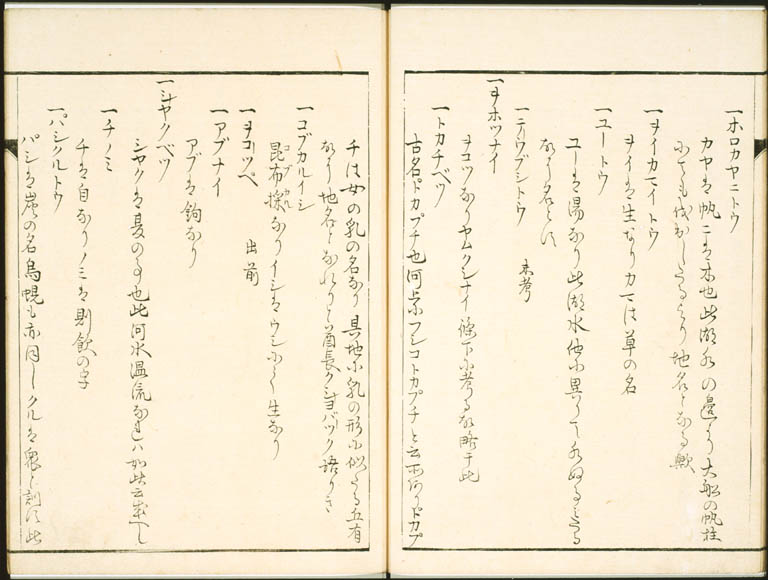 一ホロカヤニトウ
カヤは帆ニは木也此湖水の邊より大船の帆柱
にても伐出したるより地名となる歟
一ヲイカマイトウ
ヲイは生なりカマは草の名
一ユートウ
ユーは湯なり此湖水他に異りて水ぬるきたる
なり名とす
一テリウブシトウ 未考
一ヲホツナイ
ヲコツなりヤムクシナイ條下に考る故略于此
一トカチベツ
古名トカプチ也河上にフシコトカプチと云所ありトカプ
チは女の乳の名なり其地に乳の形に似たる丘有
なり地名となれりと酋長クシヨバツク語りき
一コブカルイシ
昆布採なりイシはウシにて生なり
一ヲコツペ 出前
一アブナイ
アブは鉤なり
一シヤクベツ
シヤクは夏の事也此河水温流なれハ如此云成へし
一チノミ
チは自なりノミは則飲の字
一パシクルトウ
パシは炭の名烏幌も亦同しクルは衆と訓す此